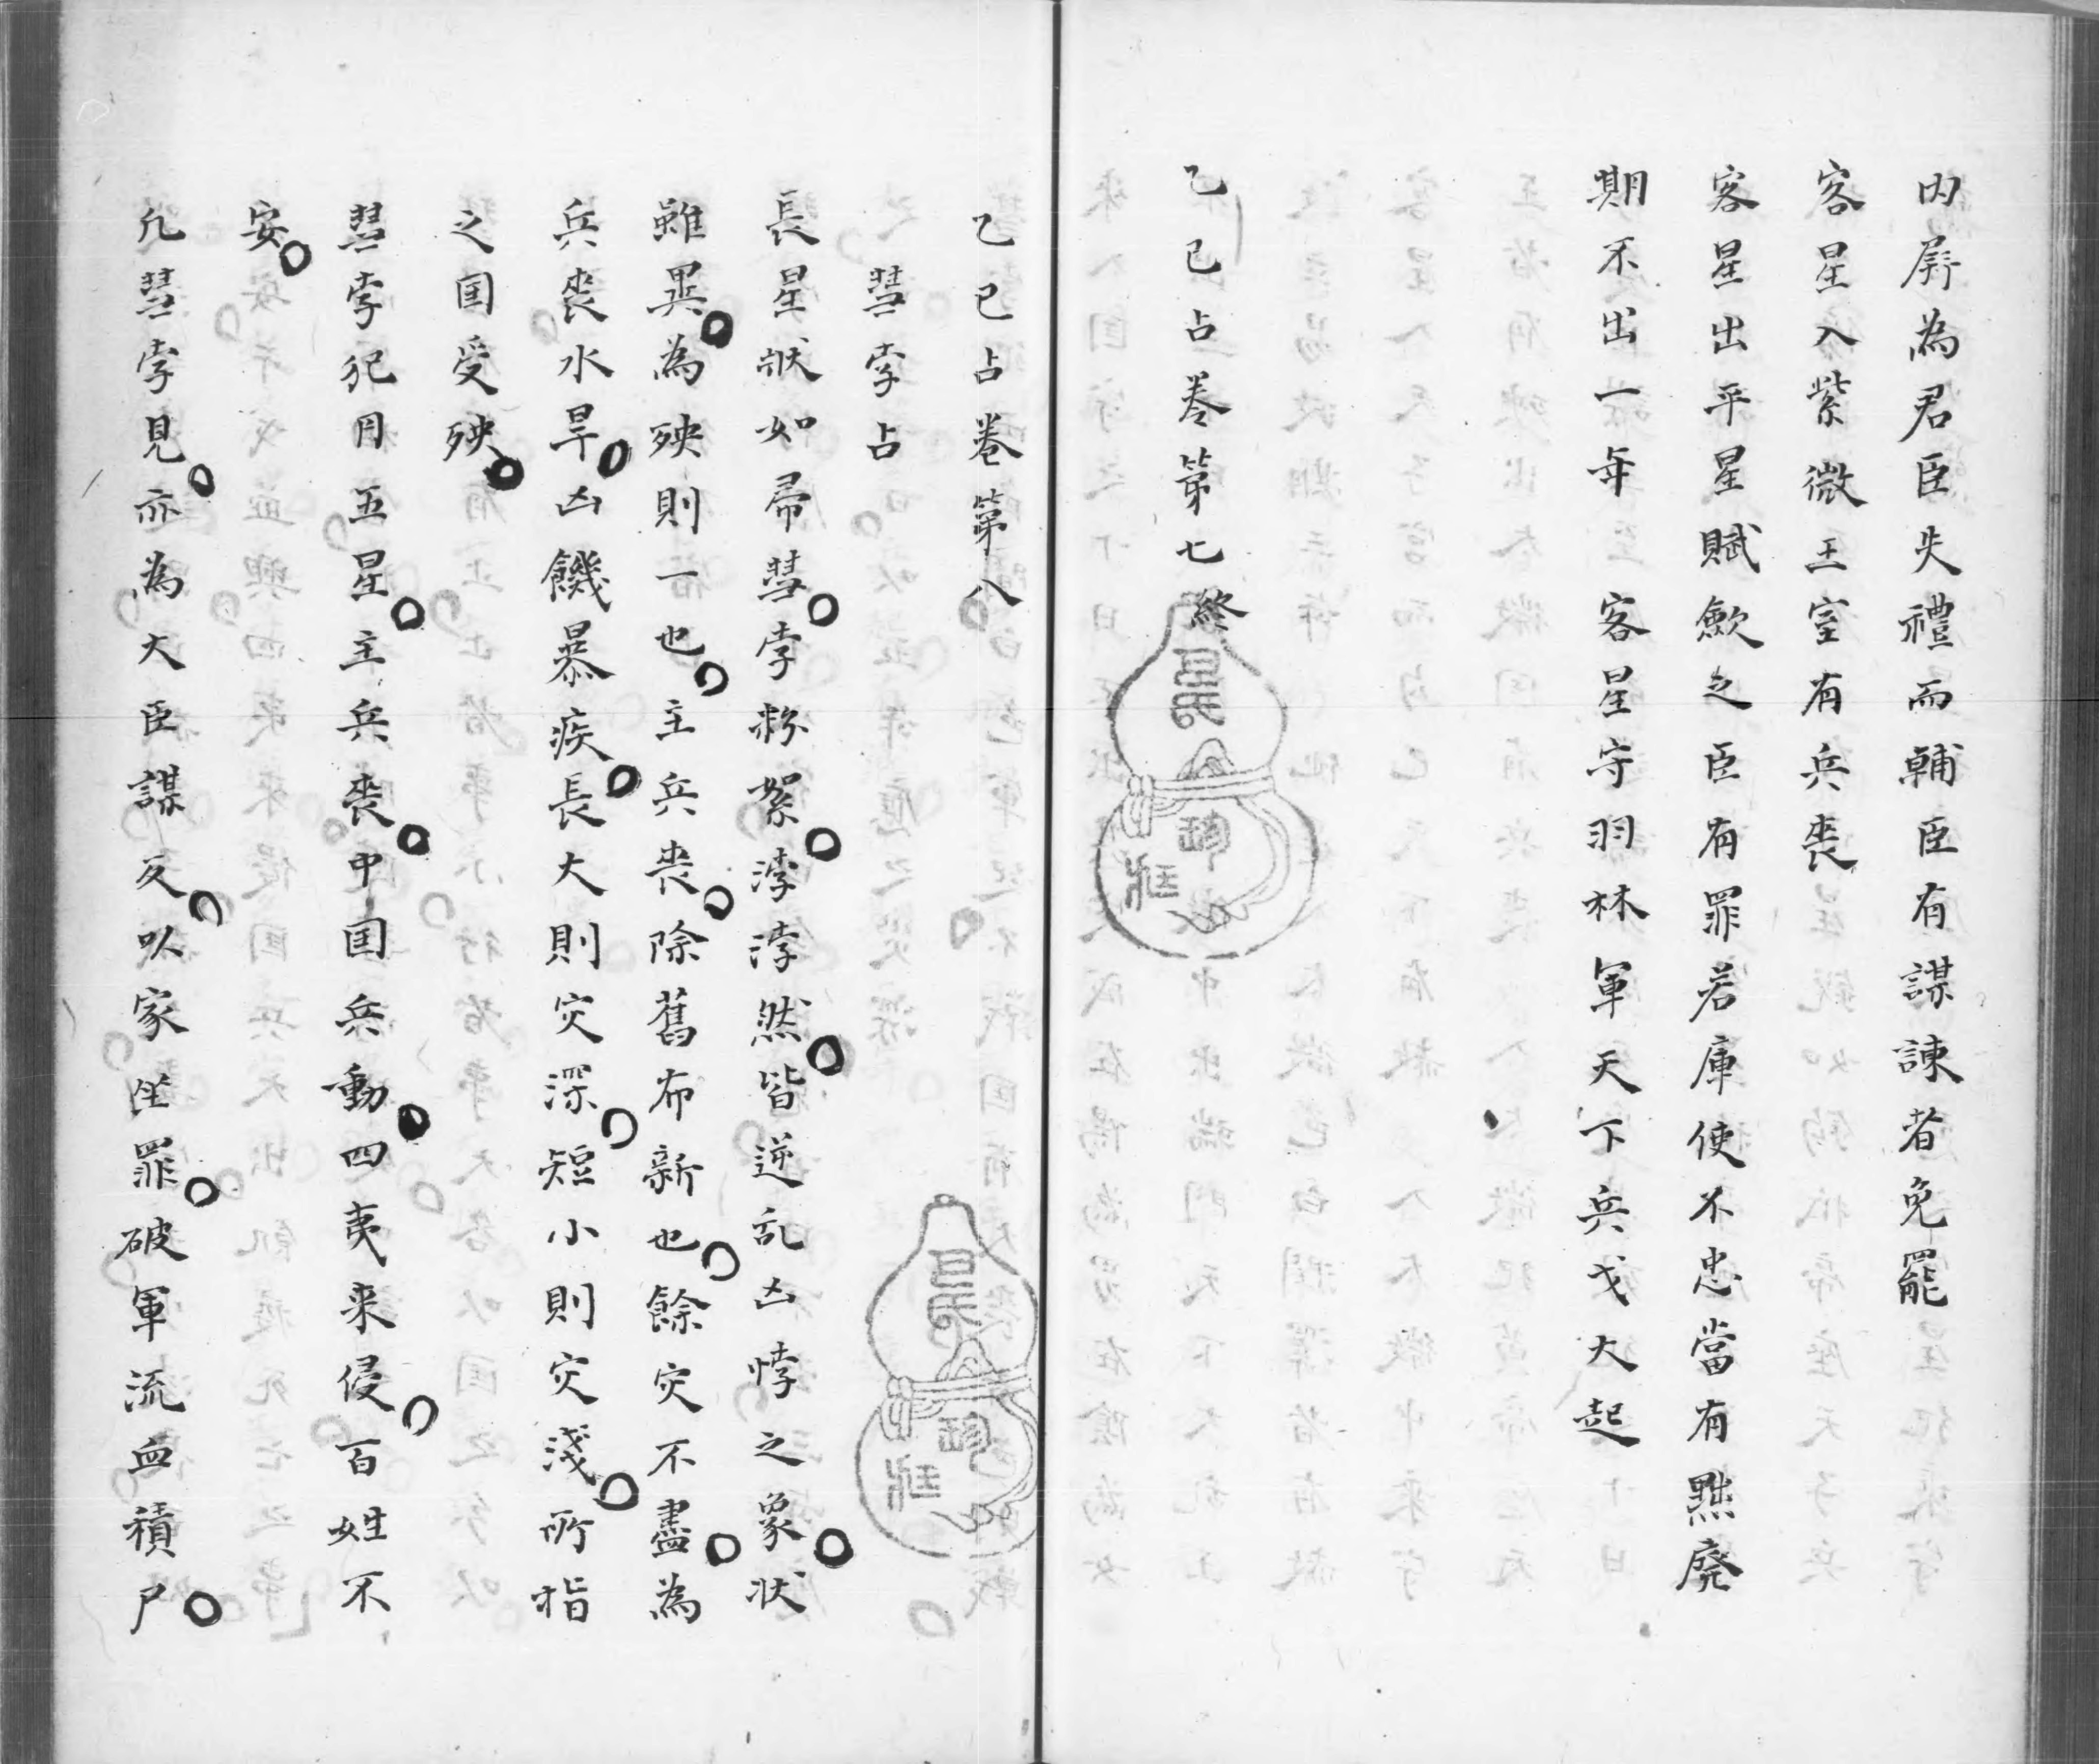 内屏為君臣失禮而輔臣有謀諫者免罷
客星入紫微王室有兵喪
客星出平星賦歛之臣有罪若庫使不忠當有黜廢
期不出一年 客星守羽林軍天下兵戈大起
乙巳占卷第七終
乙巳占卷第八
彗孛占
長星狀如帚彗孛粉絮浡浡然皆逆乱凶悖之象狀
雖異為殃則一也主兵喪除舊布新也餘灾不盡為
兵喪水旱凶饑暴疾長大則灾深短小則灾淺所指
之国受殃
彗孛犯月五星主兵喪中国兵動四夷来侵百姓不
安
凢彗孛見亦為大臣謀反以家坐罪破軍流血積尸